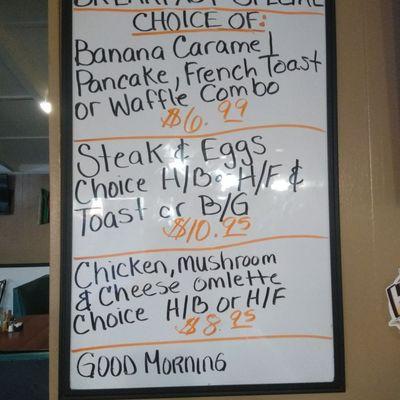 BREAKFAST SPECIAL
CHOICE OF:
Banana Caramel
Pancake, French Toast
or Waffle Combo
$6.99
Steak & Eggs
Choice H/B or H/F &
Toast or B/G
$10.95
Chicken, Mushroom
& Cheese omlette
Choice H/B or H/F
$8.95
GOOD MORNING